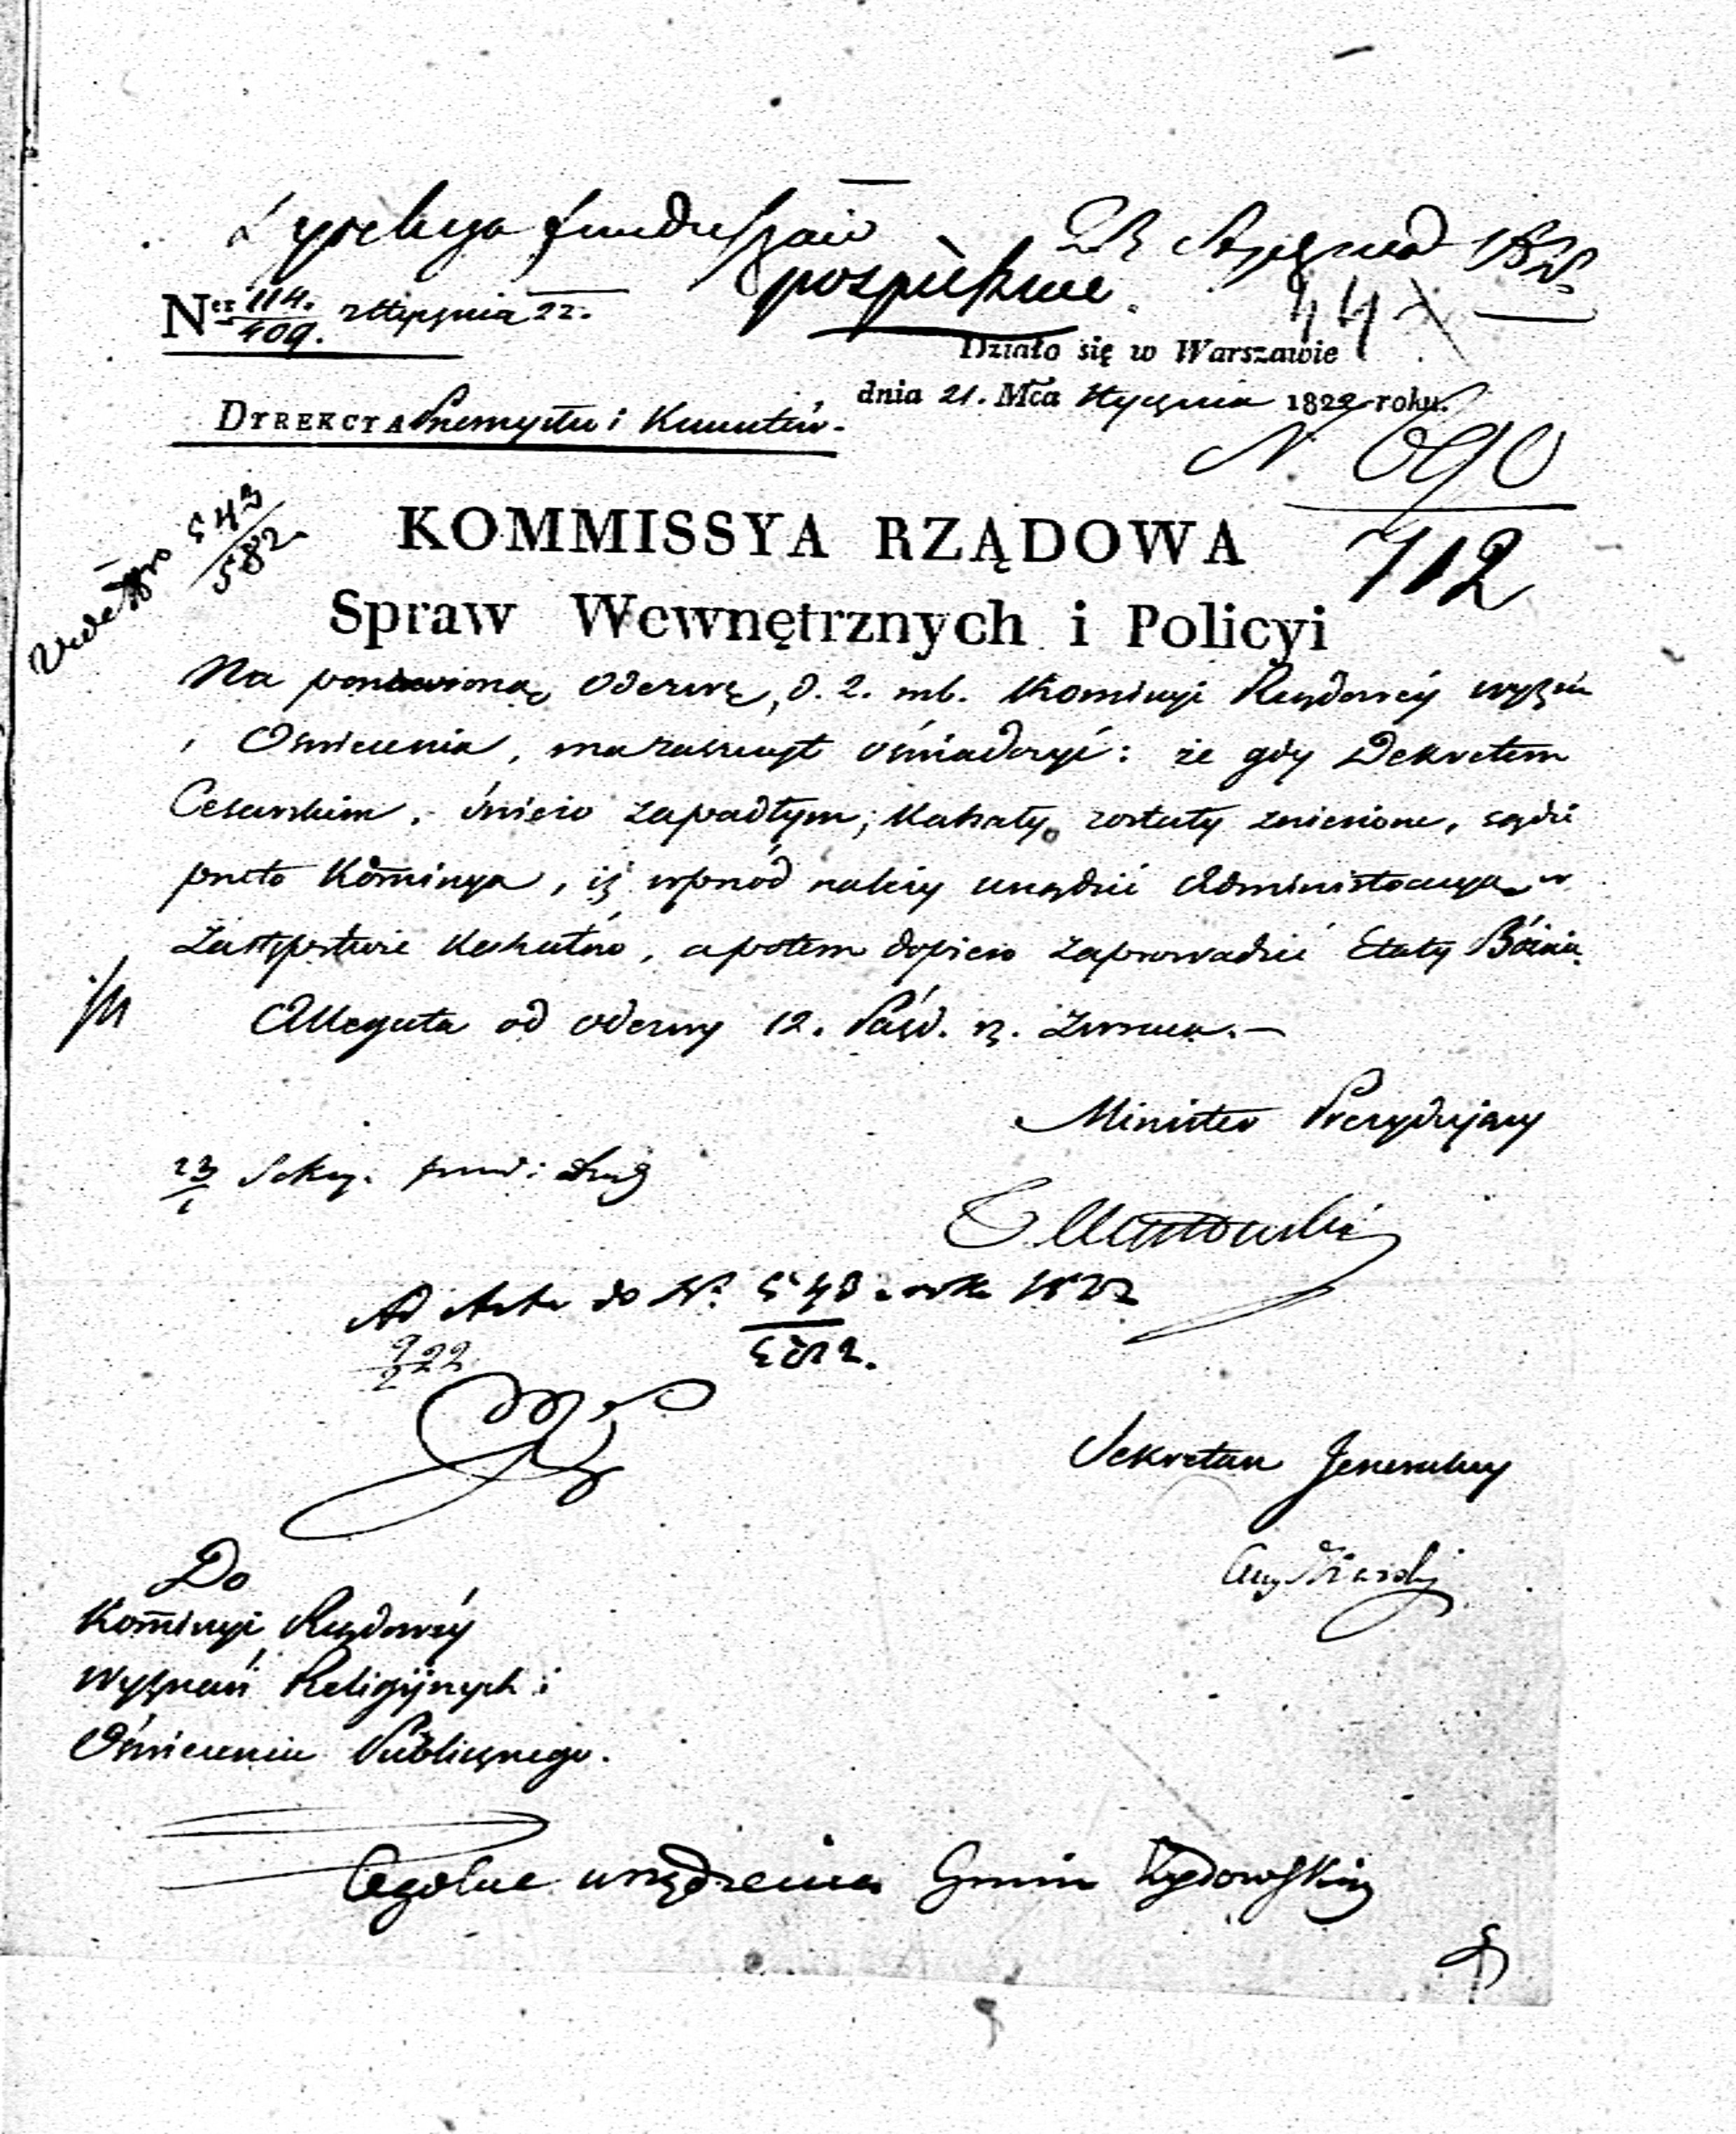 Dyrekcya funduszów
23 Stycznia 1822
pospieszne
44
Nr 114./409. z Stycznia 22.
Działo się w Warszawie
dnia 21. Mca Stycznia 1822 roku.
DYREKCYA Przemysłu i Kunsztów.
N. 690
712
543/582
KOMMISSYA RZĄDOWA
Spraw Wewnętrznych i Policyi
Na ponowioną Odezwę, d. 2. mb. Kommissyi Rządowéy wyzn.
i Oświecenia, ma zaszczyt oświadczyć: że gdy Dekretem
Cesarskim, świeżo zapadłym, Kahały zostały zniesione, sądzi
przeto Kommissya, iż wprzód należy urządzić Administracyą w
Zastępstwie Kahałów, a potem dopiero zaprowadzić Etaty Bóżnic.
Allegata od odezwy 12. Paźd. r. z. zwraca.—
Minister Prezydujący
T. Mostowski
23/1 Sekcy.
Ad Acta do Nr 543 z roku 1822
582
9/2 22
Sekretarz Jeneralny
Do
Kommissyi Rządowéy
Wyznań Religijnych i
Oświecenia Publicznego.
Ogólne urządzenia Gmin Żydowskich